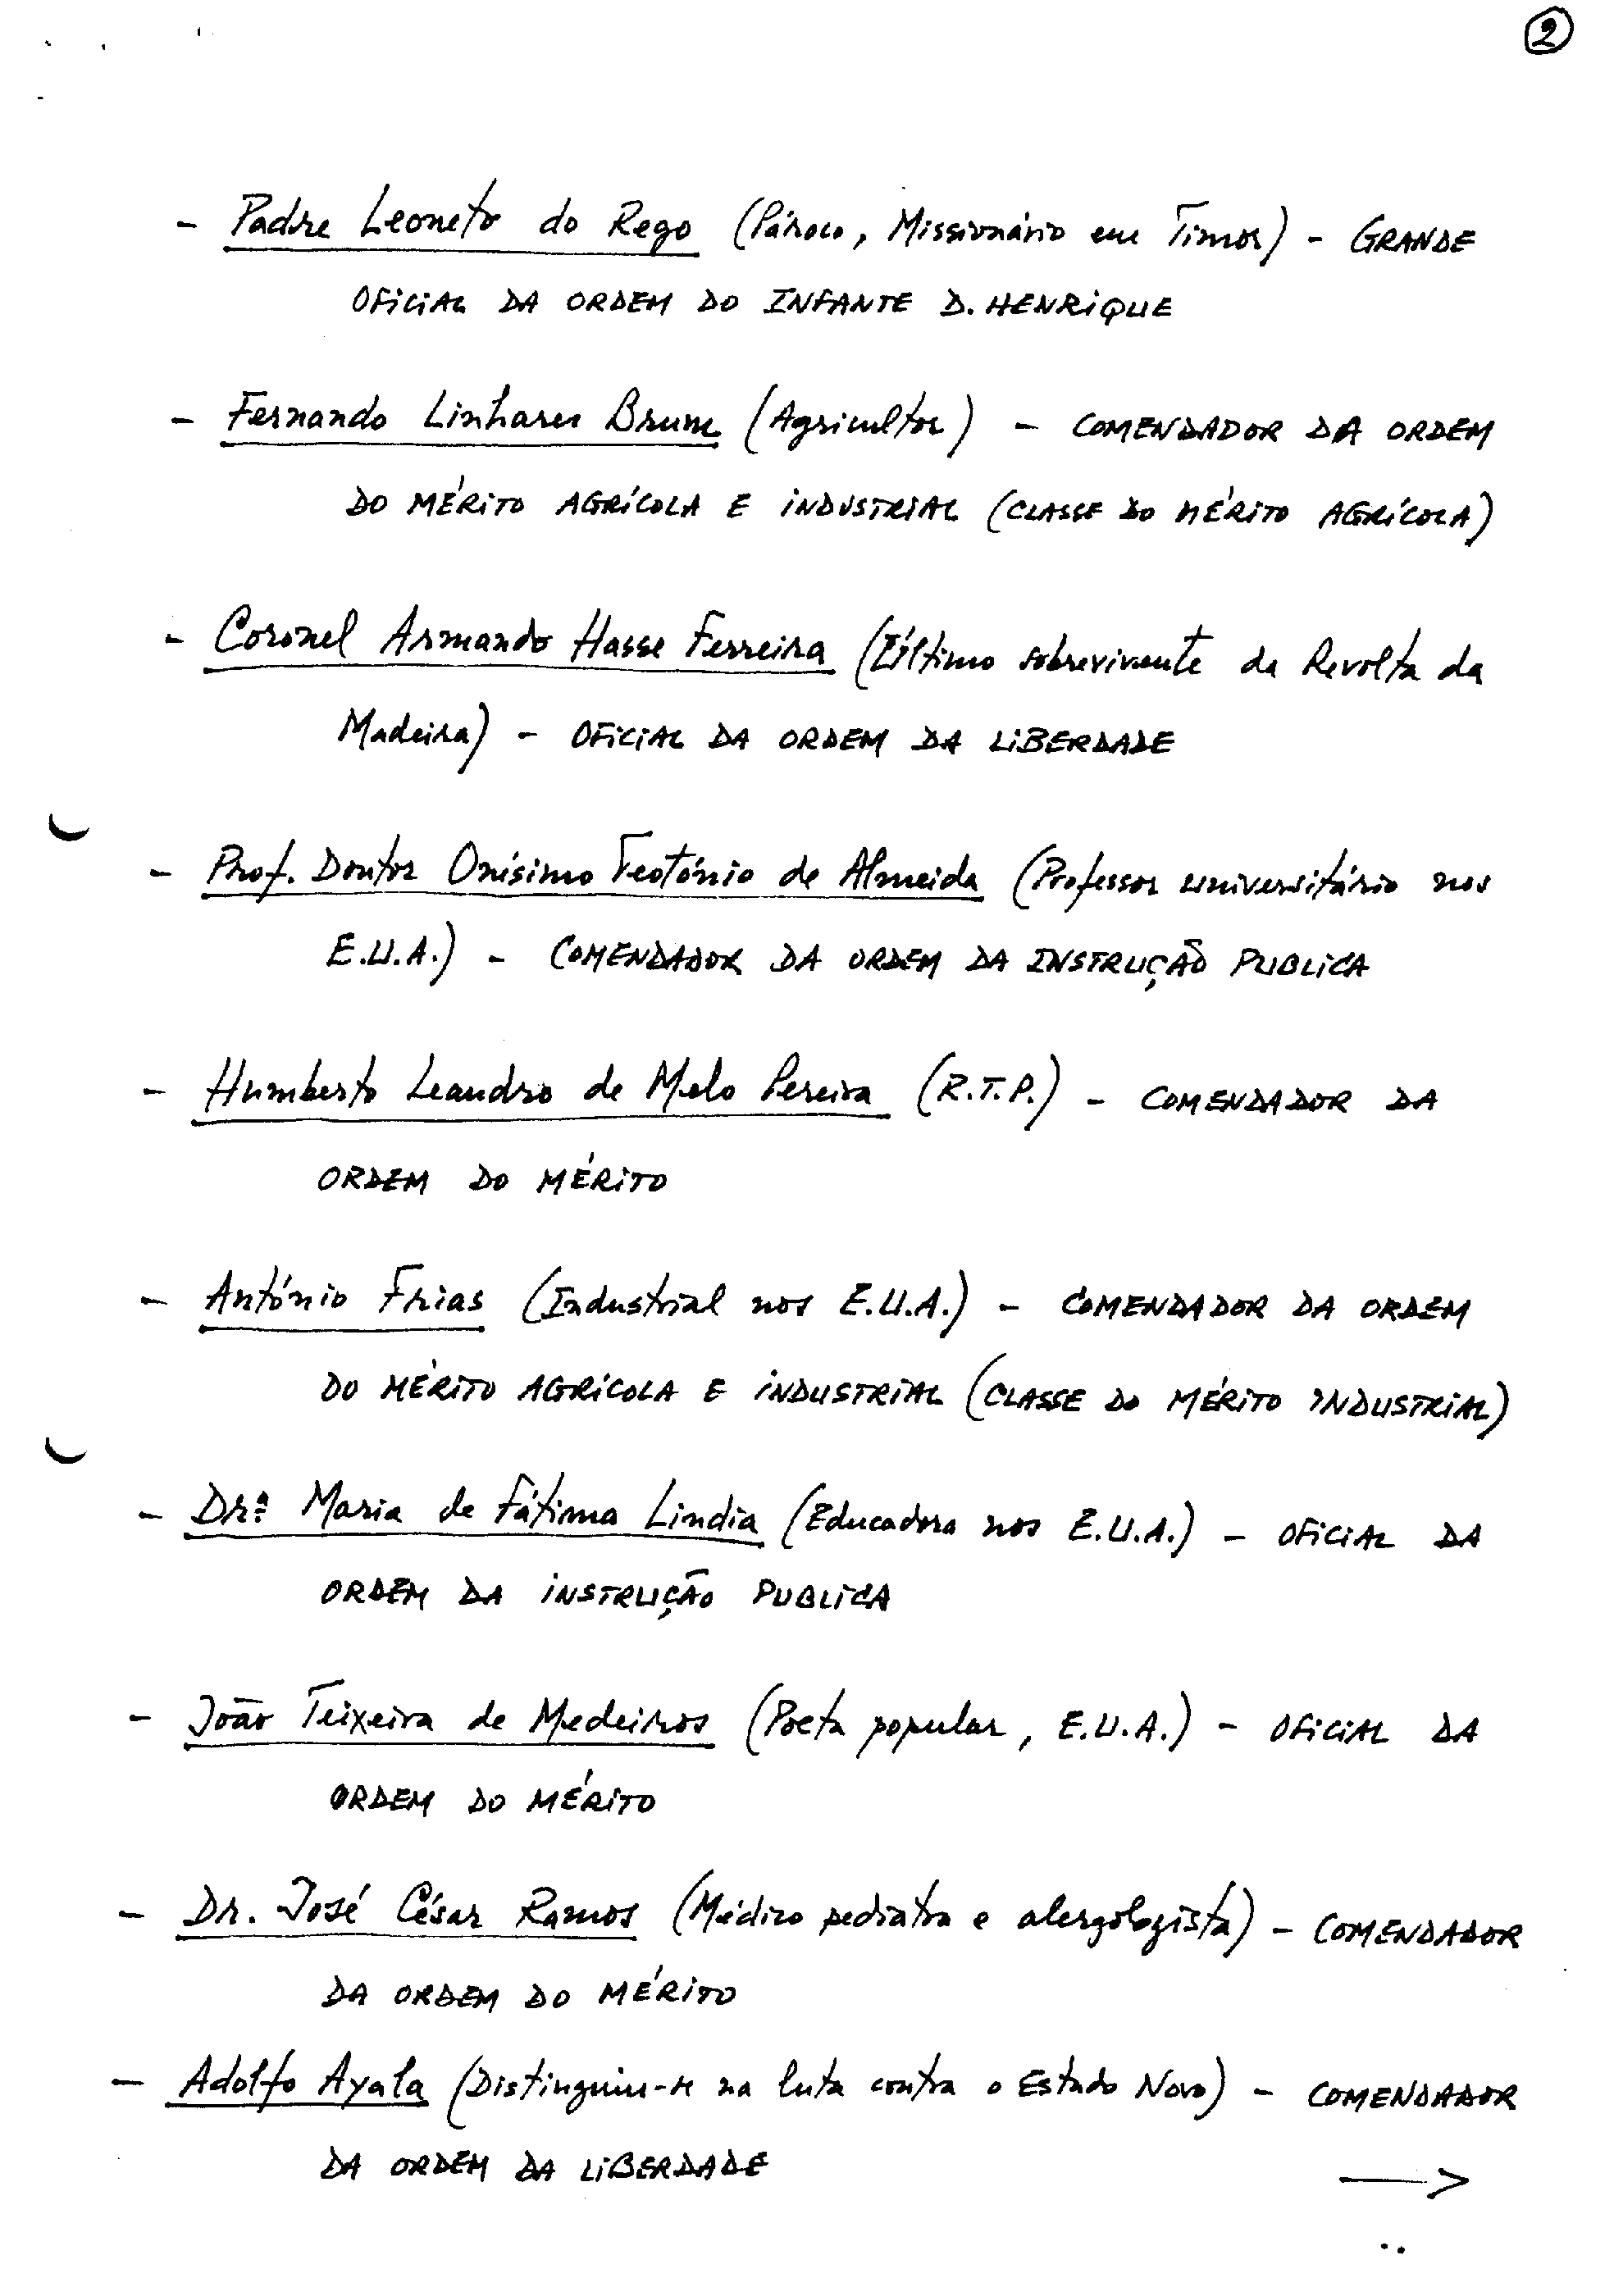 2
- Padre Leoneto do Rego (Pároco, Missionário em Timor) - GRANDE
OFICIAL DA ORDEM DO INFANTE D. HENRIQUE
- Fernando Linhares Brum (Agricultor) - COMENDADOR DA ORDEM
DO MÉRITO AGRÍCOLA E INDUSTRIAL (CLASSE DO MÉRITO AGRÍCOLA)
- Coronel Armando Hasse Ferreira (Último sobrevivente da Revolta da
Madeira) - OFICIAL DA ORDEM DA LIBERDADE
- Prof. Doutor Onésimo Teotónio de Almeida (Professor universitário nos
E.U.A.) - COMENDADOR DA ORDEM DA INSTRUÇÃO PUBLICA
- Humberto Leandro de Melo Pereira (R.T.P.) - COMENDADOR DA
ORDEM DO MÉRITO
- António Frias (Industrial nos E.U.A.) - COMENDADOR DA ORDEM
DO MÉRITO AGRÍCOLA E INDUSTRIAL (CLASSE DO MÉRITO INDUSTRIAL)
- Drª Maria de Fátima Lindia (Educadora nos E.U.A.) - OFICIAL DA
ORDEM DA INSTRUÇÃO PUBLICA
- João Teixeira de Medeiros (Poeta popular, E.U.A.) - OFICIAL DA
ORDEM DO MÉRITO
- Dr. José César Ramos (Médico pediatra e alergologista) - COMENDADOR
DA ORDEM DO MÉRITO
- Adolfo Ayala (Distinguiu-se na luta contra o Estado Novo) - COMENDADOR
DA ORDEM DA LIBERDADE
→